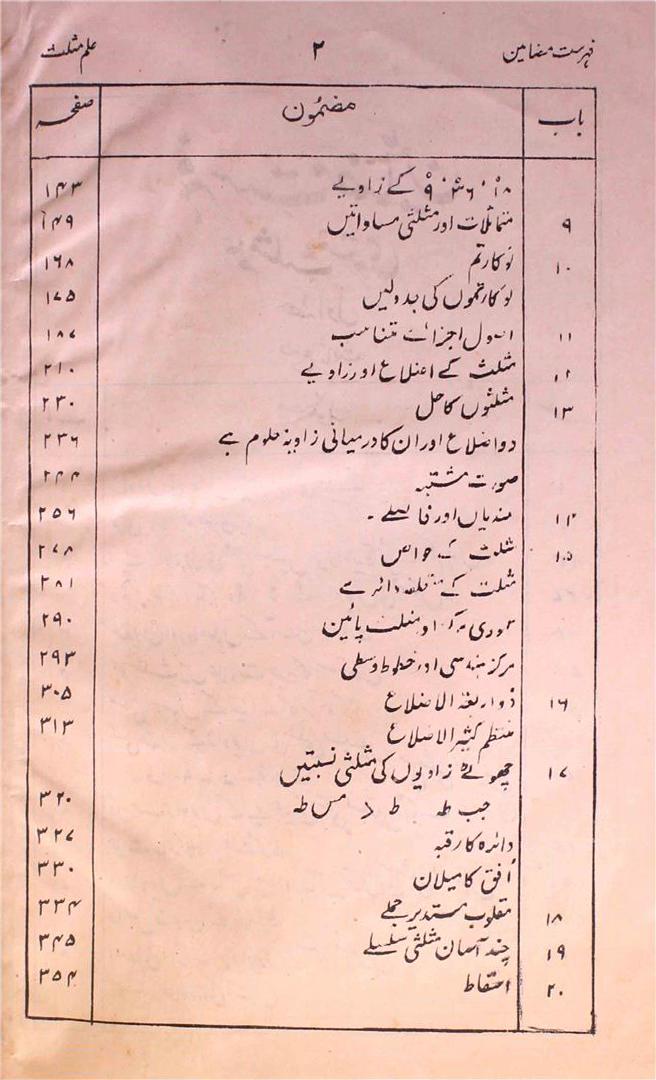 فہرست مضامین ۲ علم مثلث
باب مضمون صفحہ
۱۸°، ۳۶°، ۹° کے زاویے ۱۴۳
۹ متماثلات اور مثلثی مساواتیں ۱۴۹
۱۰ لوکارتم ۱۶۸
لوکارتموں کی جدولیں ۱۷۵
۱۱ اصول اجزائے متناسب ۱۸۷
۱۲ مثلث کے اضلاع اور زاویے ۲۱۰
۱۳ مثلثوں کا حل ۲۳۰
دو اضلاع اور ان کا درمیانی زاویہ معلوم ہے ۲۳۶
صورت مشتبہ ۲۴۴
۱۴ بلندیاں اور فاصلے ۔ ۲۵۶
۱۵ مثلث کے خواص ۲۷۸
مثلث کے متعلقہ دائرے ۲۸۱
عمودی مرکز اور مثلث پائین ۲۹۰
مرکز ہندسی اور خطوط وسطی ۲۹۳
۱۶ ذو اربعۃ الاضلاع ۳۰۵
منتظم کثیر الاضلاع ۳۱۳
۱۷ چھوٹے زاویوں کی مثلثی نسبتیں
جب طہ ط > مس طہ ۳۲۰
دائرہ کا رقبہ ۳۲۷
اُفق کا میلان ۳۳۰
۱۸ مقلوب مستدیر جملے ۳۳۴
۱۹ چند آسان مثلثی سلسلے ۳۴۵
۲۰ اسقاط ۳۵۴